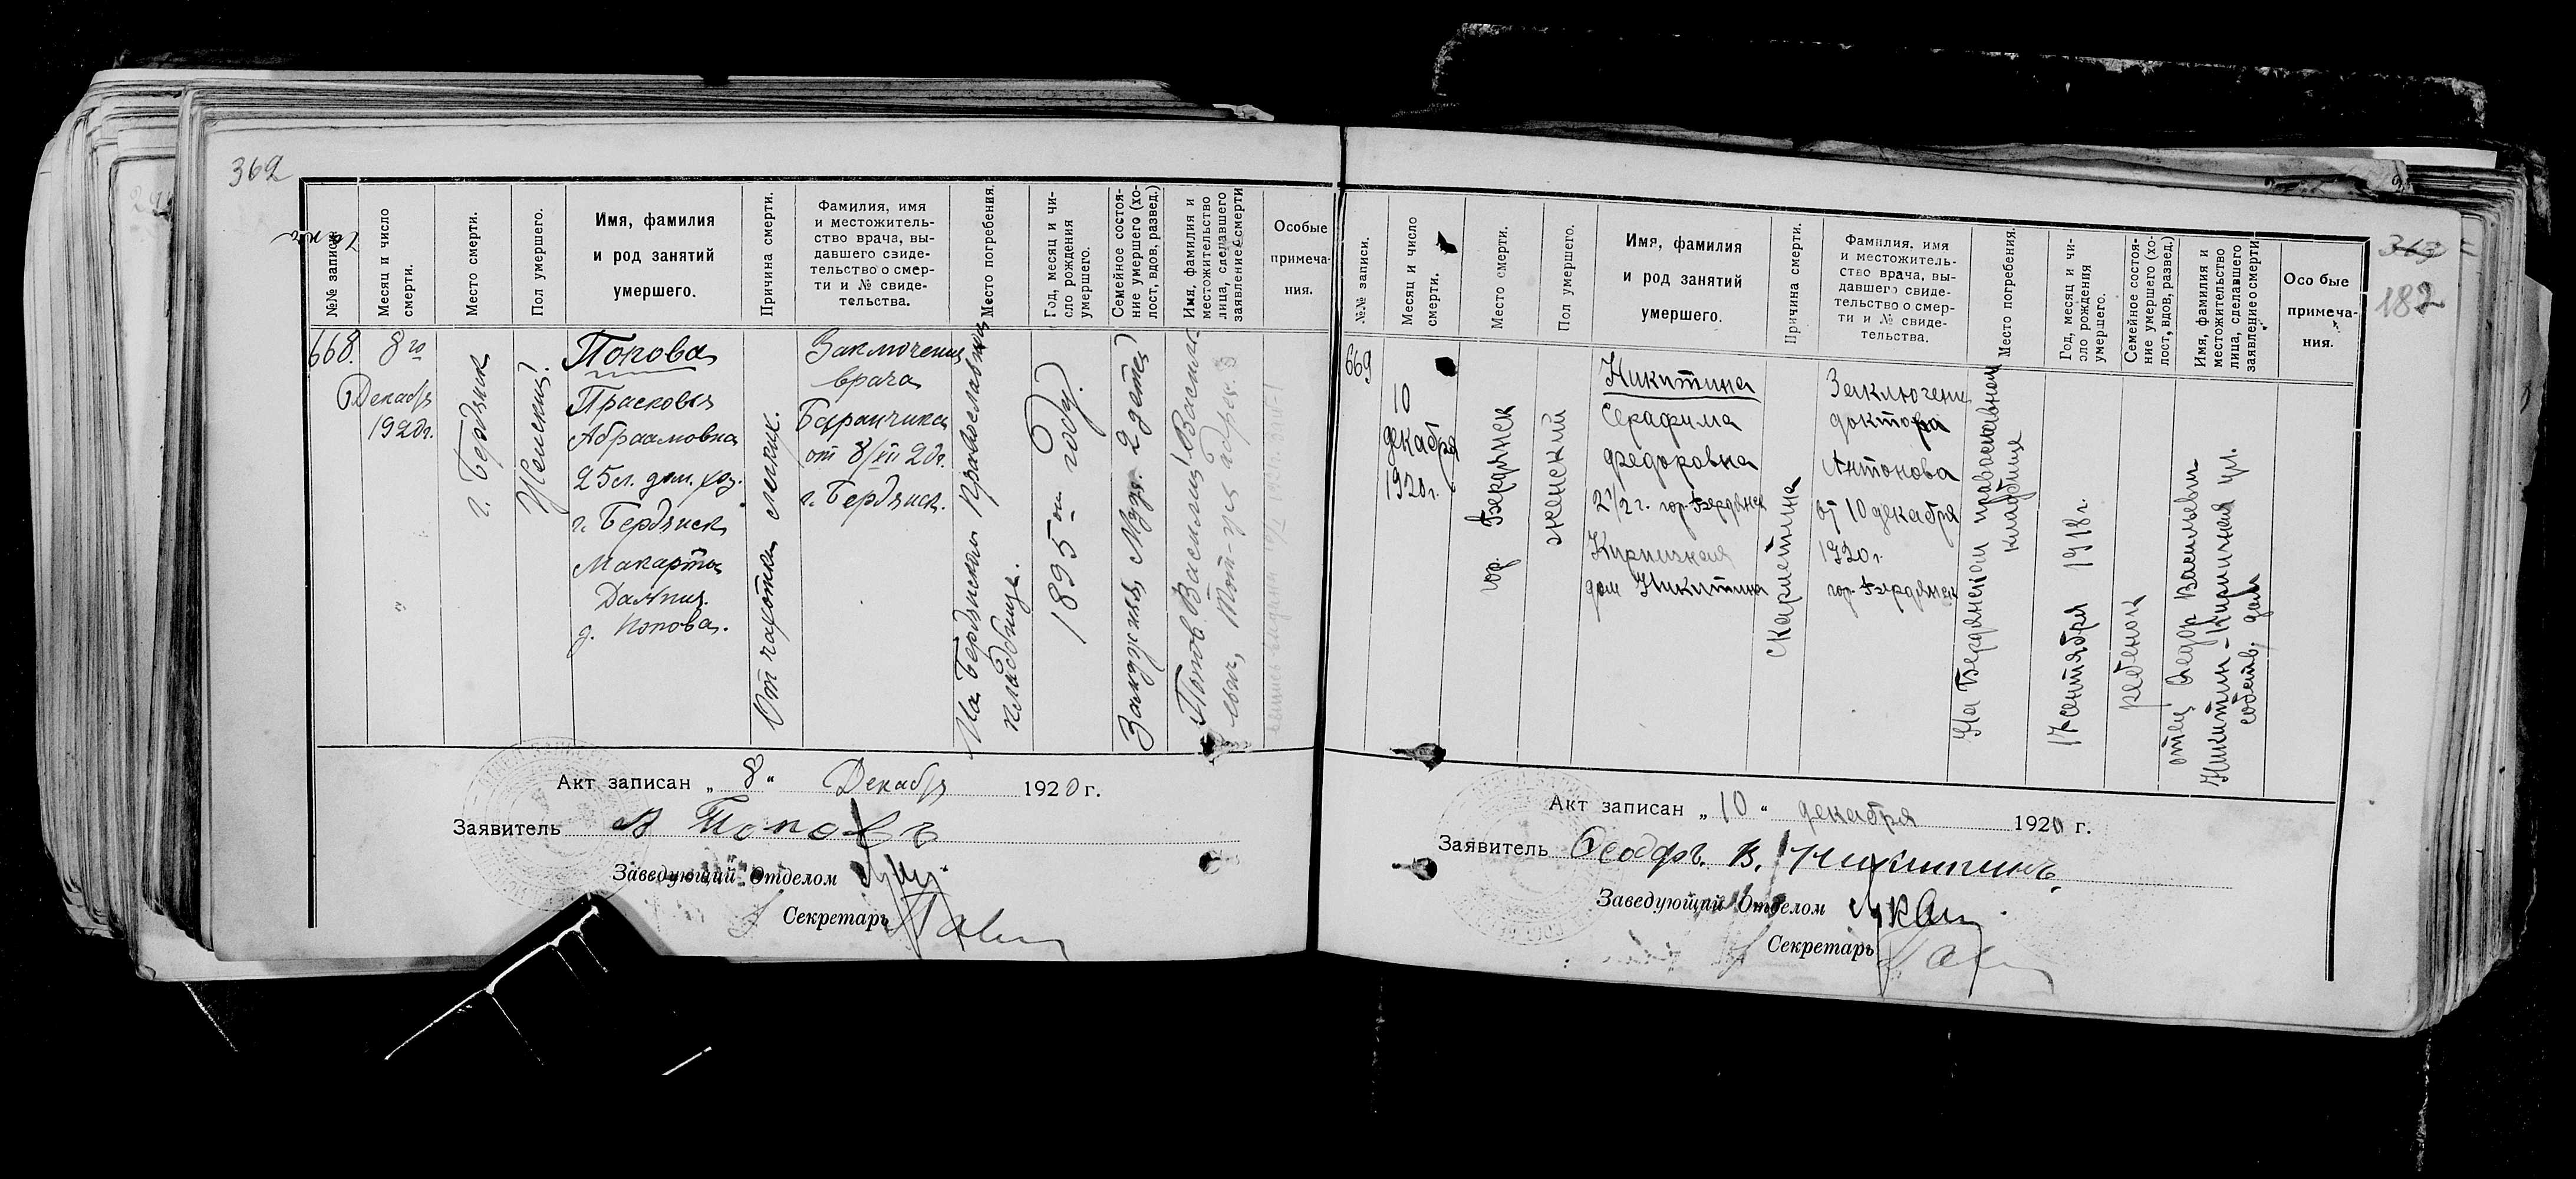 362
№№ записи.
Месяц и число
смерти.
Место смерти.
Пол умершего.
Имя, фамилия
и род занятий
умершего.
Причина смерти.
Фамилия, имя
и местожитель-
ство врача, вы-
давшего свиде-
тельство о смер-
ти и № свиде-
тельства.
Место погребения.
Год, месяц и чи-
сло рождения
умершего.
Семейное состоя-
ние умершего (хо-
лост, вдов, развед.)
Имя, фамилия и
местожительство
лица, сделавшего
заявление о смерти
Особые
примеча-
ния.
668.
8го
Декабря
1920г.
г. Бердянск
Женский.
Попова
Прасковья
Абраамовна
25 л. дом. хоз.
г. Бердянск
Макорта
д. Попова.
От чахотки легких.
Заключение
врача
Баранчика
от 8/XII 20г.
г. Бердянск.
На Бердянском православном
кладбище.
1895ом году.
Замужняя 2 детей
Попов Василий Василье-
вич, адрес.
Акт записан „ 8 " Декабря 1920 г.
Заявитель В Поповъ
Заведующий Отделом
Секретарь
363
182
№№ записи.
Месяц и число
смерти.
Место смерти.
Пол умершего.
Имя, фамилия
и род занятий
умершего.
Причина смерти.
Фамилия, имя
и местожитель-
ство врача, вы-
давшего свиде-
тельство о смер-
ти и № свиде-
тельства.
Место погребения.
Год, месяц и чи-
сло рождения
умершего.
Семейное состоя-
ние умершего (хо-
лост, вдов, развед.)
Имя, фамилия и
местожительство
лица, сделавшего
заявление о смерти
Особые
примеча-
ния.
669
10
декабря
1920г.
гор. Бердянск
женский
Никитина
Серафима
Федоровна
2½ г. гор. Бердянск
Кирпичная
дом Никитина
Скарлетина
Заключение
доктора
Антонова
от 10 декабря
1920г.
гор. Бердянск
На Бердянском православном
кладбище
17 сентября 1918г.
ребенок
отец Федор Васильевич
Никитин - Кирпичная ул.
собств. дом
Акт записан „ 10 " декабря 1920 г.
Заявитель Феодръ. В. Никитинъ.
Заведующий Отделом
Секретарь